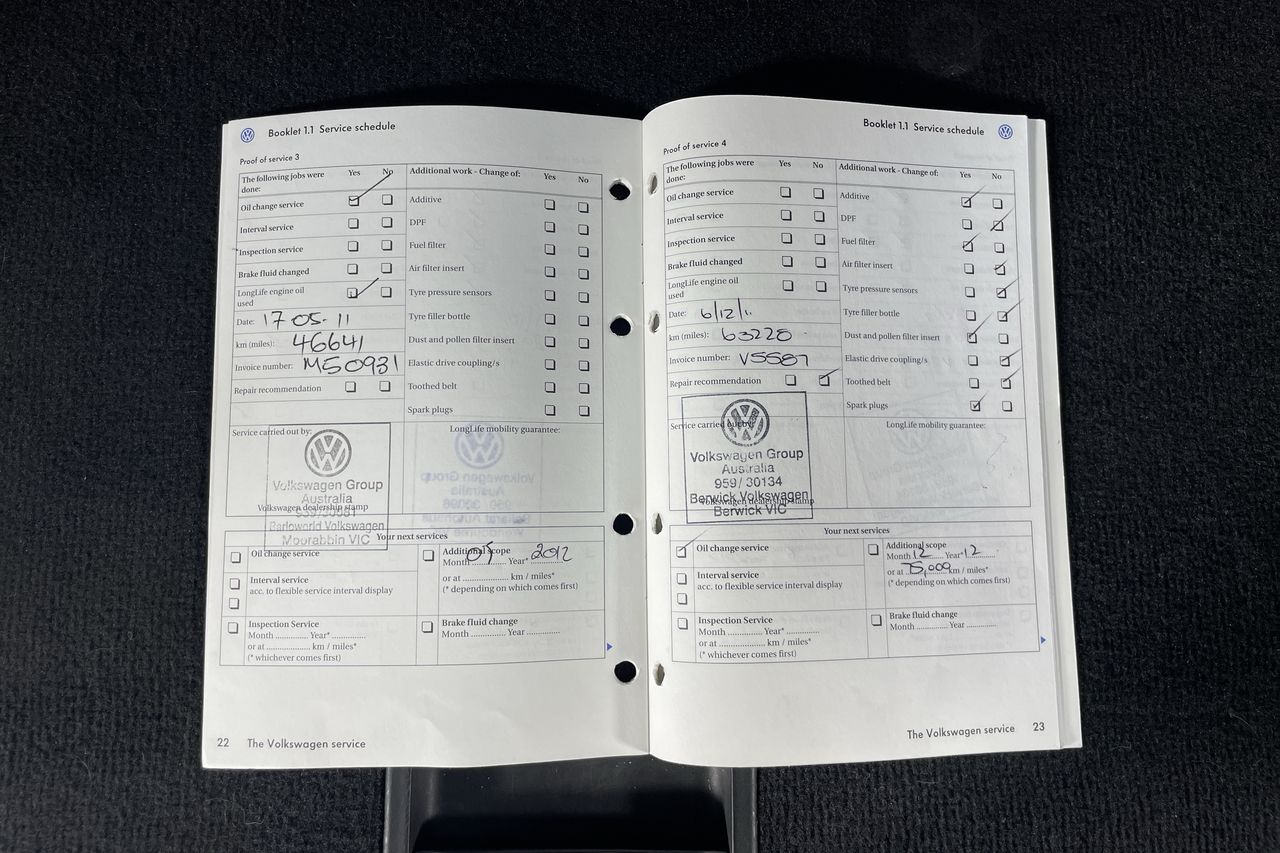 Booklet 1.1 Service schedule
Proof of service 3
The following jobs were done:
Yes No
Additional work - Change of:
Yes No
Oil change service
Additive
Interval service
DPF
Inspection service
Fuel filter
Brake fluid changed
Air filter insert
LongLife engine oil used
Tyre pressure sensors
Date: 17 05-11
Tyre filler bottle
km (miles): 46641
Dust and pollen filter insert
Invoice number: M50931
Elastic drive coupling/s
Repair recommendation
Toothed belt
Spark plugs
Service carried out by:
LongLife mobility guarantee:
Volkswagen Group
Australia
Volkswagen dealership stamp
Barloworld Volkswagen
Moorabbin VIC
Your next services
Oil change service
Additional scope
Month 05 Year* 2012
or at .................. km / miles*
(* depending on which comes first)
Interval service
acc. to flexible service interval display
Inspection Service
Month ............ Year* ............
or at ................ km / miles*
(* whichever comes first)
Brake fluid change
Month ............ Year ............
22 The Volkswagen service
Booklet 1.1 Service schedule
Proof of service 4
The following jobs were done:
Yes No
Additional work - Change of:
Yes No
Oil change service
Additive
Interval service
DPF
Inspection service
Fuel filter
Brake fluid changed
Air filter insert
LongLife engine oil used
Tyre pressure sensors
Date: 6/12/11
Tyre filler bottle
km (miles): 63220
Dust and pollen filter insert
Invoice number: V5587
Elastic drive coupling/s
Repair recommendation
Toothed belt
Spark plugs
Service carried out by:
LongLife mobility guarantee:
Volkswagen Group
Australia
959/ 30134
Berwick Volkswagen
Volkswagen dealership stamp
Berwick VIC
Your next services
Oil change service
Additional scope
Month 12 Year* 12
or at 75,000 km / miles*
(* depending on which comes first)
Interval service
acc. to flexible service interval display
Inspection Service
Month ............ Year* ............
or at ................ km / miles*
(* whichever comes first)
Brake fluid change
Month ............ Year ............
The Volkswagen service 23